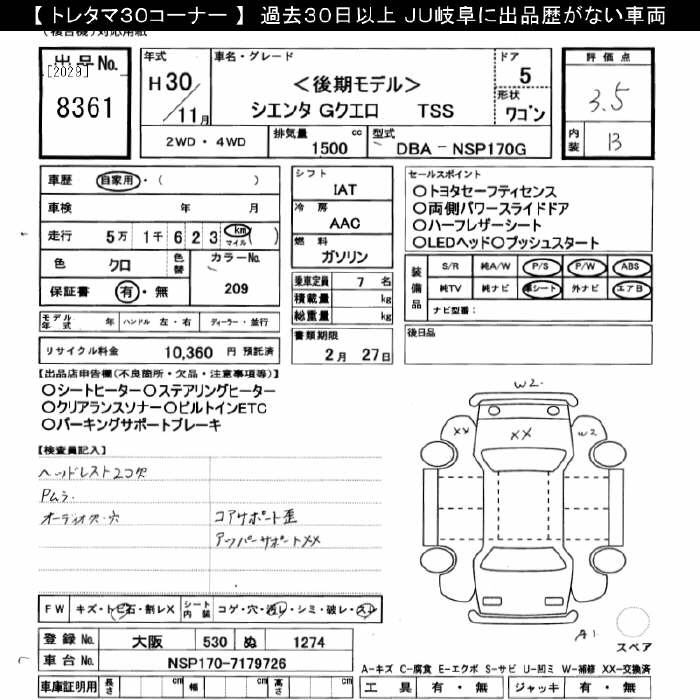 【 トレタマ30コーナー 】 過去30日以上 JU岐阜に出品歴がない車両
出品No. [2029] 8361
年式 H30/11月
車名・グレード
<後期モデル>
シエンタ Gクエロ TSS
ドア 5
形状 ワゴン
評価点 3.5
内装 B
2WD・4WD
排気量 1500 cc
型式 DBA-NSP170G
車歴 自家用・( )
車検 年 月
走行 5万 1千 6 2 3 km マイル ( )
色 クロ 色替 カラーNo. 209
保証書 有・無
シフト IAT
冷房 AAC
燃料 ガソリン
乗車定員 7 名
積載量 kg
総重量 kg
セールスポイント
○トヨタセーフティセンス
○両側パワースライドドア
○ハーフレザーシート
○LEDヘッド○プッシュスタート
装備品 S/R 純A/W P/S P/W ABS
純TV 純ナビ 革シート 外ナビ エアB
ナビ型番:
モデル年式 年 ハンドル 左・右 ディーラー・並行
書類期限 2月 27日
後日品
リサイクル料金 10,360 円 預託済
【出品店申告欄(不良箇所・欠品・注意事項等)】
○シートヒーター○ステアリングヒーター
○クリアランスソナー○ビルトインETC
○パーキングサポートブレーキ
【検査員記入】
ヘッドレスト2コ欠
Pムラ
オーディオ欠・穴
コアサポート歪
アッパーサポートXX
W2
XX
XX
W2
A1
スペア
FW キズ・トビ石・割レX シート内装 コゲ・穴・汚レ・シミ・破レ・スレ
登録No. 大阪 530 ぬ 1274
車台No. NSP170-7179726
車庫証明用 長さ cm 幅 cm 高さ cm
A-キズ C-腐食 E-エクボ S-サビ U-凹ミ W-補修 XX-交換済
工具 有・無 ジャッキ 有・無